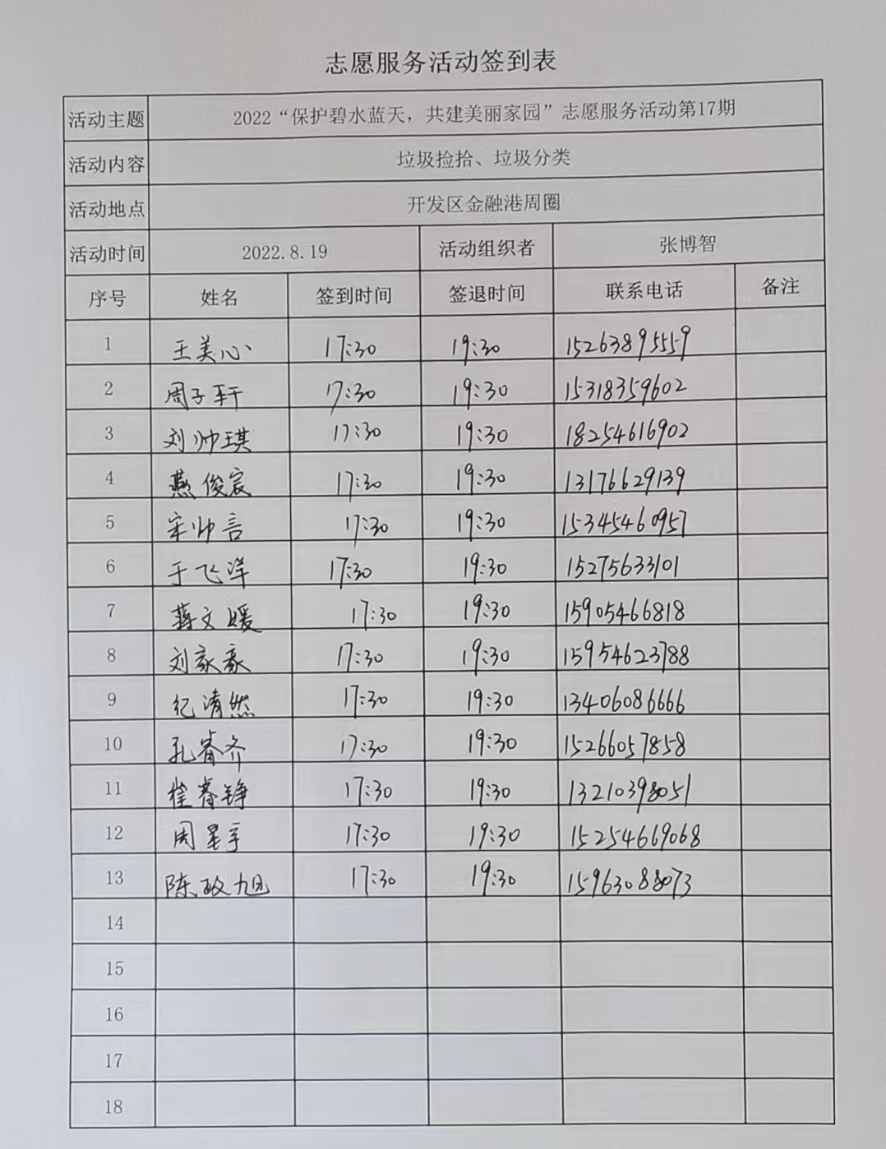 志愿服务活动签到表
活动主题 2022“保护碧水蓝天，共建美丽家园”志愿服务活动第17期
活动内容 垃圾捡拾、垃圾分类
活动地点 开发区金融港周圈
活动时间 2022.8.19 活动组织者 张博智
序号 姓名 签到时间 签退时间 联系电话 备注
1 王美心 17:30 19:30 15263895559
2 周子轩 17:30 19:30 15318359602
3 刘帅琪 17:30 19:30 18254616902
4 燕俊宸 17:30 19:30 13176629139
5 宋帅言 17:30 19:30 15345460957
6 于飞洋 17:30 19:30 15275633101
7 蒋文媛 17:30 19:30 15905466818
8 刘家豪 17:30 19:30 15954623788
9 纪清然 17:30 19:30 13406086666
10 孔睿齐 17:30 19:30 15266057858
11 17:30 19:30 13210398051
12 周星宇 17:30 19:30 15254669068
13 陈政旭 17:30 19:30 15963088073
14
15
16
17
18